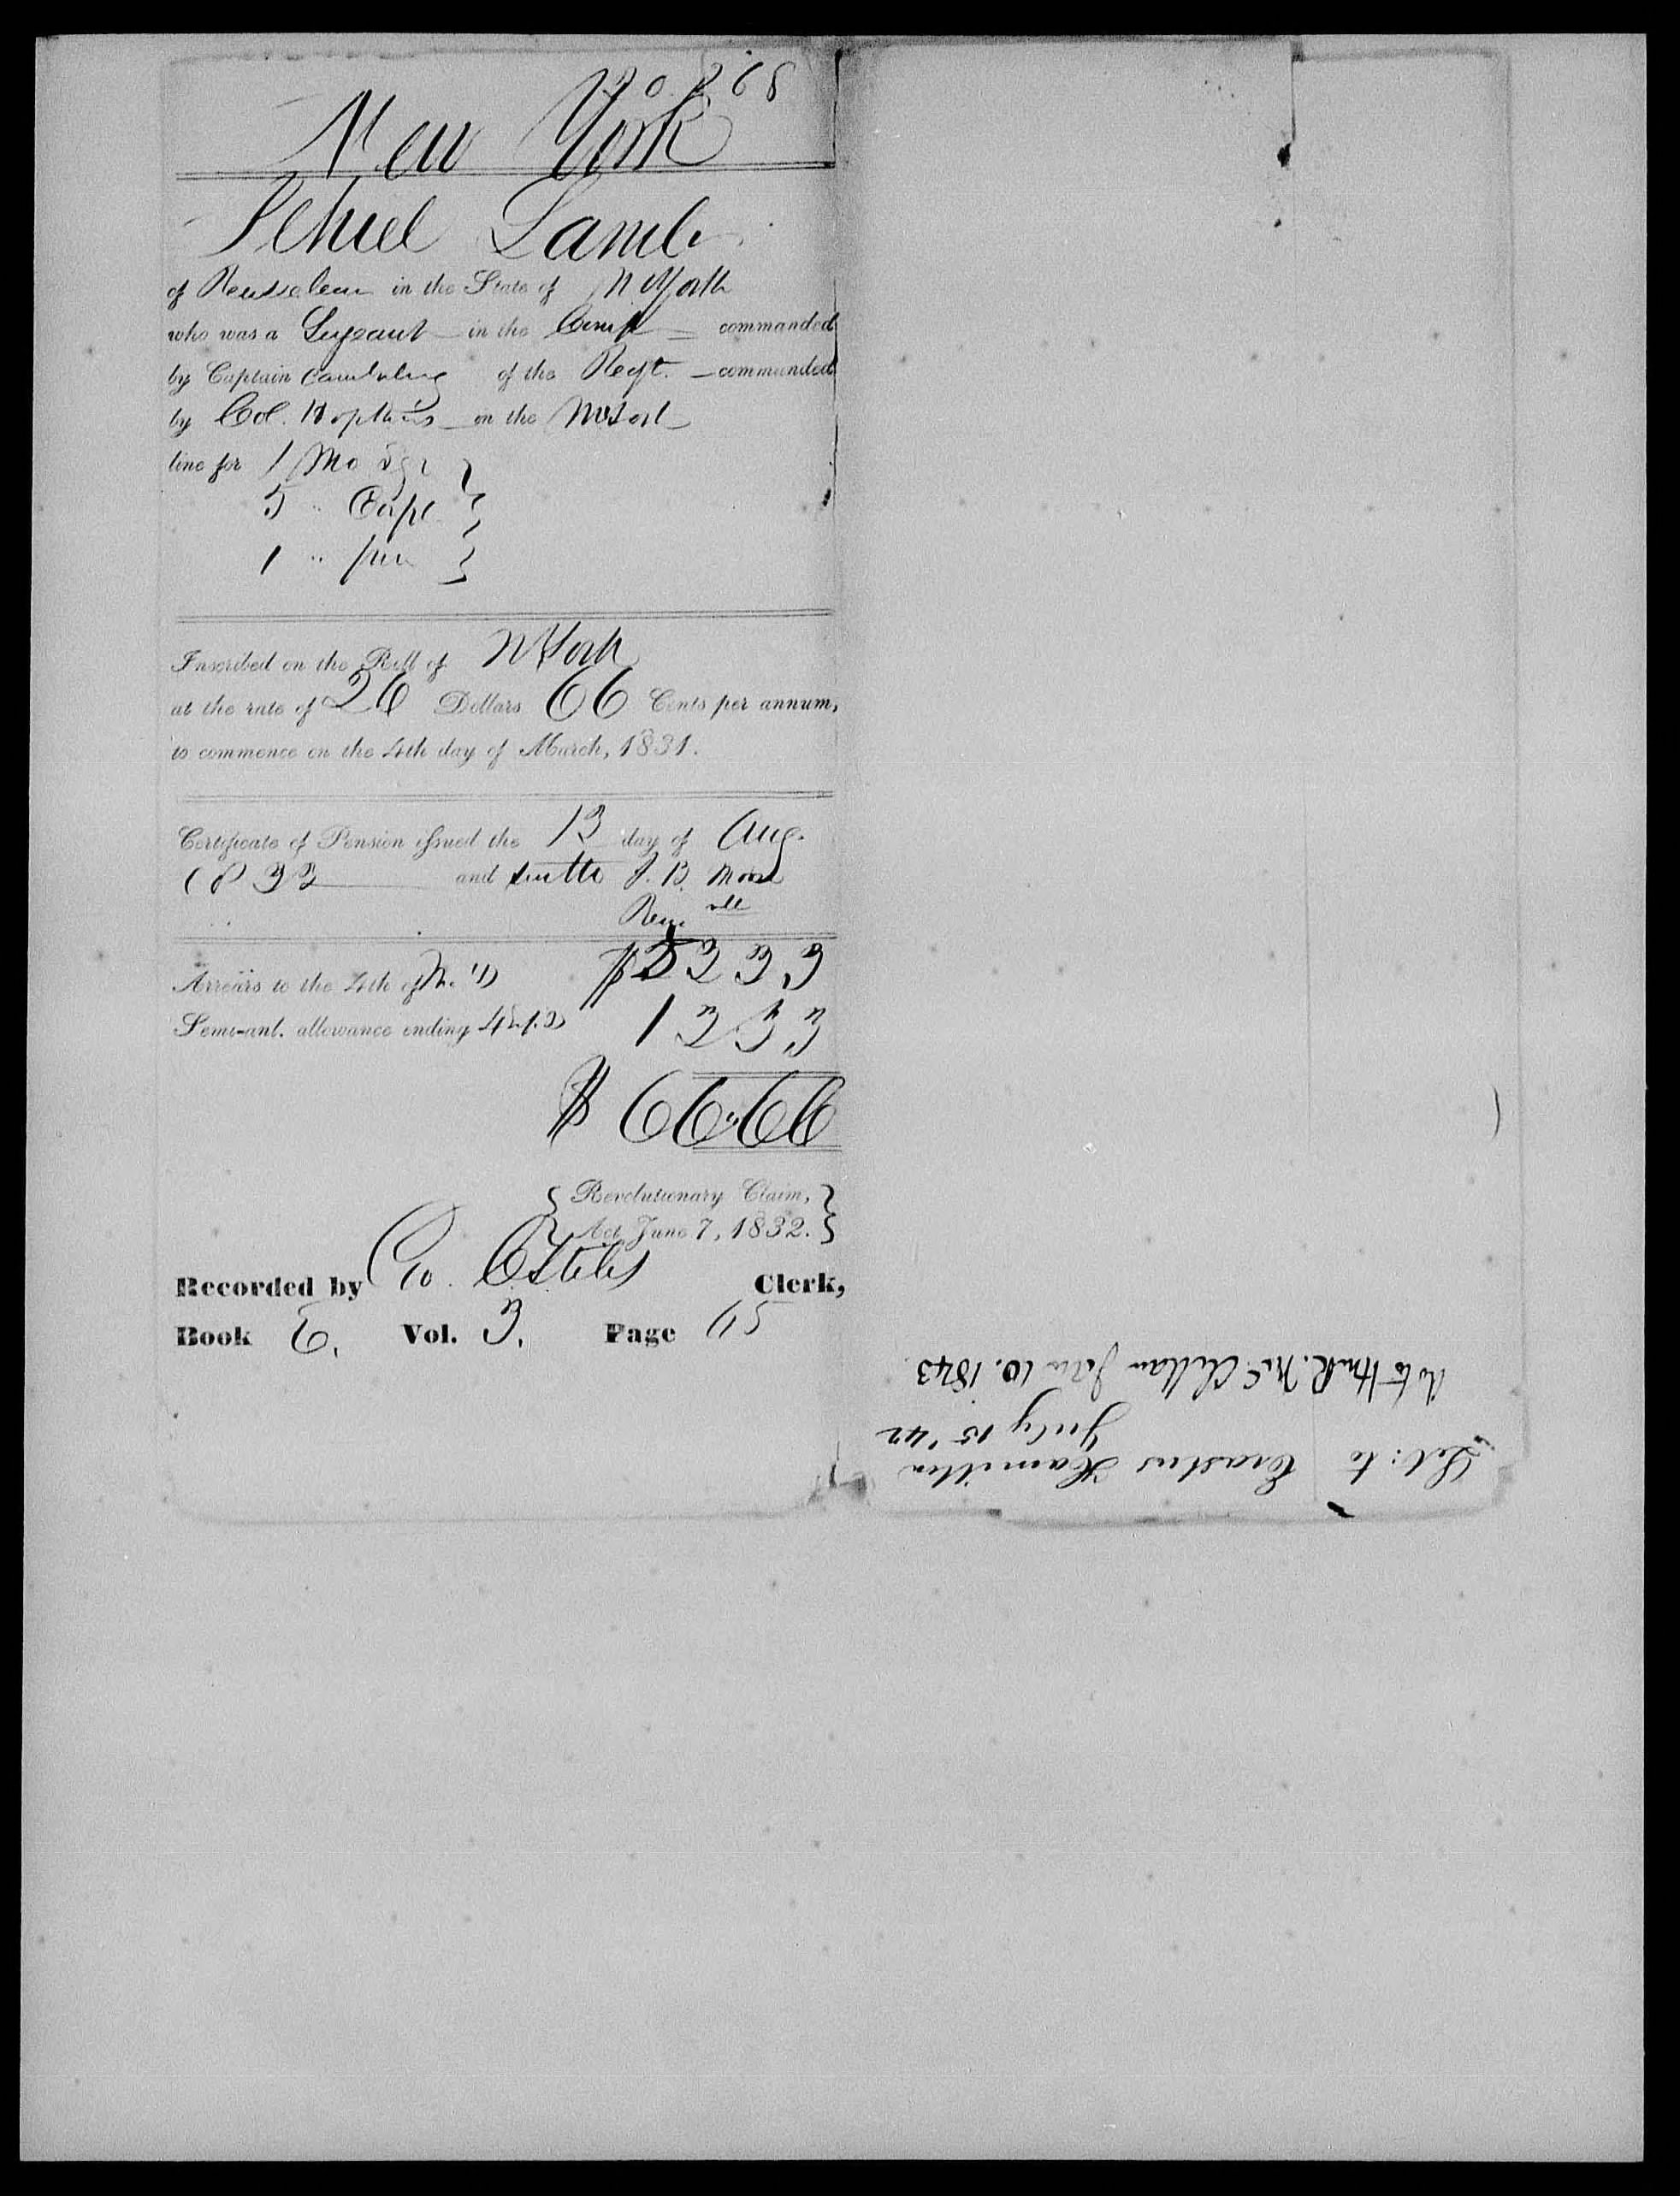 New York
Jehiel Lamb
of Rensselear in the State of N York
who was a Sergeant in the Comp commanded
by Captain of the Regt. commanded
by Col. Hopkins on the N York
line for 1 Mo Sgt
5 " Corpl
1 "
Inscribed on the Roll of N York
at the rate of 26 Dollars 66 Cents per annum,
to commence on the 4th day of March, 1831.
Certificate of Pension issued the 13 day of Aug.
1833 and J. B.
Arrears to the 4th of M. $53 33
Semi-anl. allowance ending 4 Sep. 13 33
$ 66.66
Revolutionary Claim,
Act June 7, 1832.
Recorded by Clerk,
Book E. Vol. 3. Page
Let: to Erastus Hamilton
July 15 '42
Hon R. McClellan Jan 10. 1843